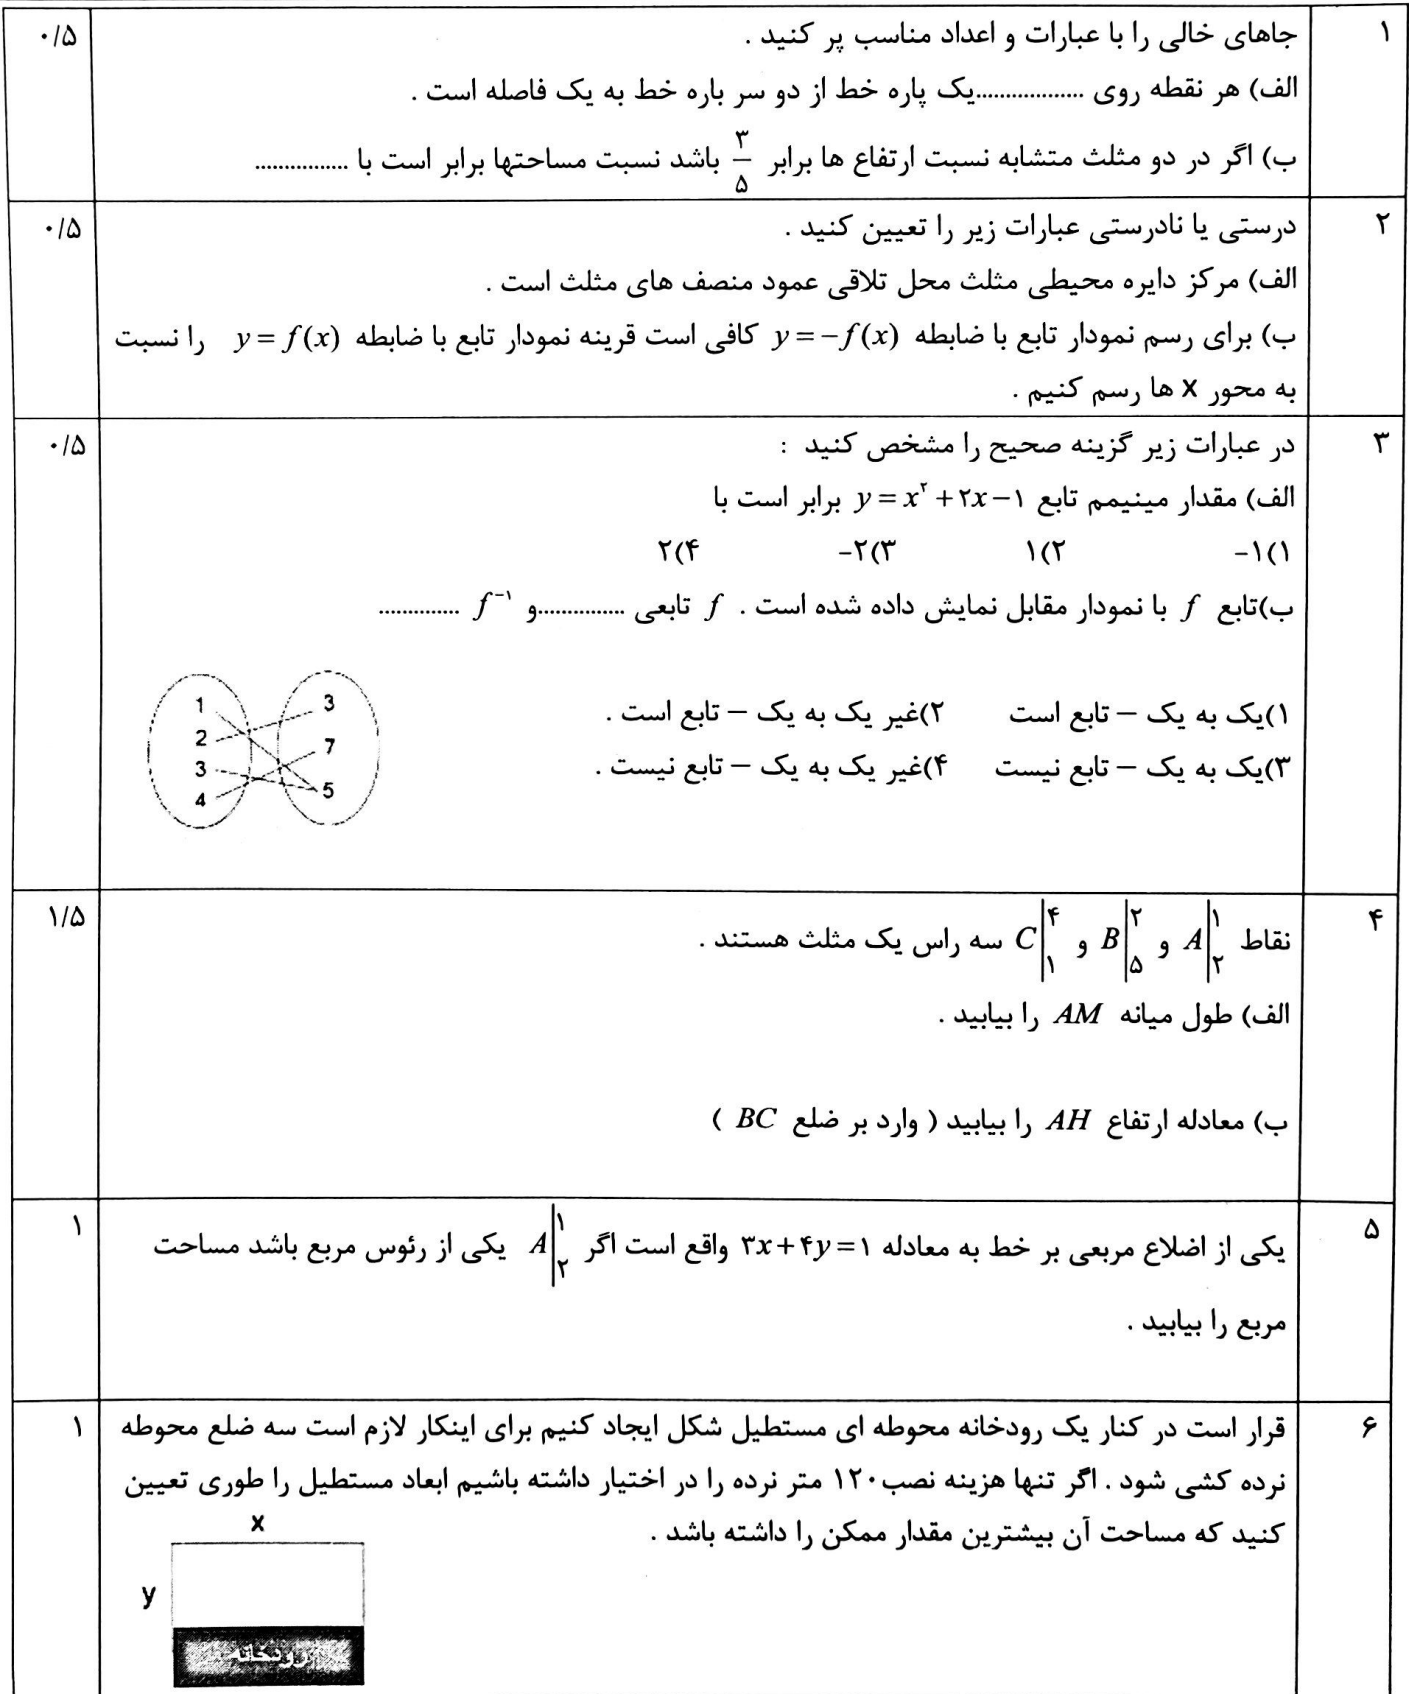 ۱
جاهای خالی را با عبارات و اعداد مناسب پر کنید .
۰/۵
الف) هر نقطه روی ..................یک پاره خط از دو سر باره خط به یک فاصله است .
ب) اگر در دو مثلث متشابه نسبت ارتفاع ها برابر ۳/۵ باشد نسبت مساحتها برابر است با ................
۲
درستی یا نادرستی عبارات زیر را تعیین کنید .
۰/۵
الف) مرکز دایره محیطی مثلث محل تلاقی عمود منصف های مثلث است .
ب) برای رسم نمودار تابع با ضابطه y = −f(x) کافی است قرینه نمودار تابع با ضابطه y = f(x) را نسبت
به محور X ها رسم کنیم .
۳
در عبارات زیر گزینه صحیح را مشخص کنید :
۰/۵
الف) مقدار مینیمم تابع y = x² + ۲x − ۱ برابر است با
۱)۱- ۲)۱ ۳)۲- ۴)۲
ب)تابع f با نمودار مقابل نمایش داده شده است . f تابعی ...............و f⁻¹ ..............
۱)یک به یک – تابع است ۲)غیر یک به یک – تابع است .
۳)یک به یک – تابع نیست ۴)غیر یک به یک – تابع نیست .
1 3
2 7
3 5
4
۴
نقاط A|۱ ۲ و B|۲ ۵ و C|۴ ۱ سه راس یک مثلث هستند .
۱/۵
الف) طول میانه AM را بیابید .
ب) معادله ارتفاع AH را بیابید ( وارد بر ضلع BC )
۵
یکی از اضلاع مربعی بر خط به معادله ۳x + ۴y = ۱ واقع است اگر A|۱ ۲ یکی از رئوس مربع باشد مساحت
۱
مربع را بیابید .
۶
قرار است در کنار یک رودخانه محوطه ای مستطیل شکل ایجاد کنیم برای اینکار لازم است سه ضلع محوطه
۱
نرده کشی شود . اگر تنها هزینه نصب۱۲۰ متر نرده را در اختیار داشته باشیم ابعاد مستطیل را طوری تعیین
کنید که مساحت آن بیشترین مقدار ممکن را داشته باشد .
x
y
رودخانه